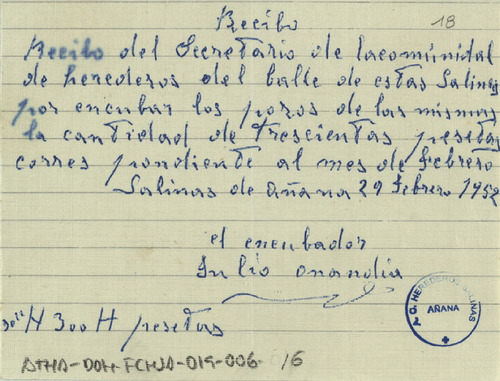 Recibo
18
Recibo del Secretario de lacomunidal
de herederos del balle de estas Salinas
por encubar los pozos de las mismas
la cantidad de trescientas pesetas
corres pondiente al mes de febrero
Salinas de añana 29 febrero 1952
el encubador
Julio onandia
H 300 H pesetas
C. HEREDEROS SALINAS
AÑANA
ATHA-DOH-FCHJA-019-006- /6